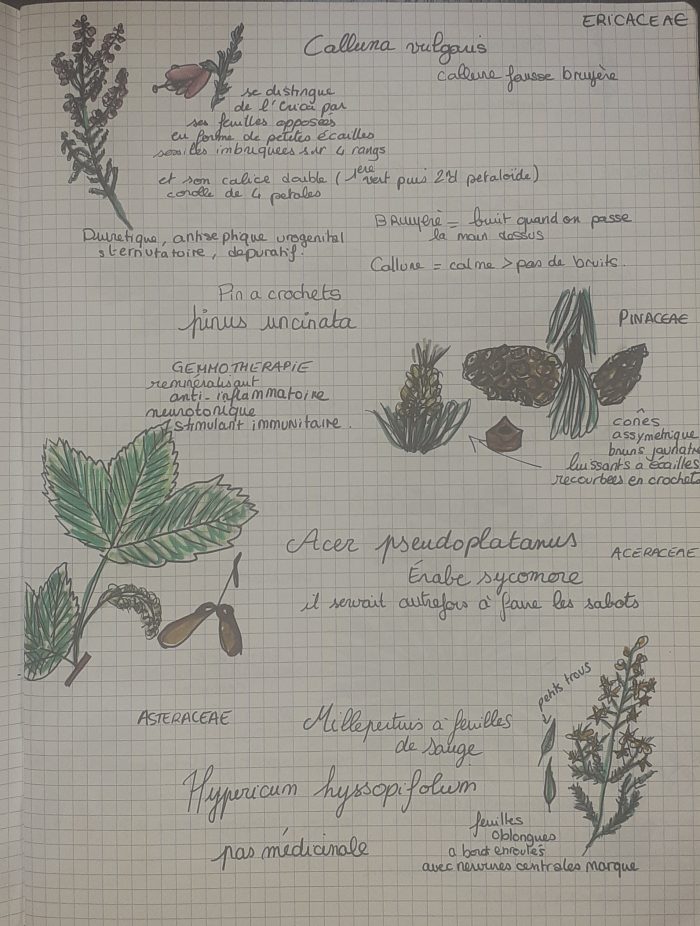 ERICACEAE
Calluna vulgaris
callune fausse bruyère
se distingue
de l'Erica par
ses feuilles opposées
en forme de petites écailles
sessiles imbriquées sur 4 rangs
et son calice double (1ere vert puis 2d petaloïde)
corolle de 4 petales
Bruyère = bruit quand on passe
la main dessus
Diuretique, antiseptique urogenital
sternutatoire, depuratif.
Callune = calme > pas de bruits.
Pin a crochets
pinus uncinata
PINACEAE
GEMMOTHERAPIE
remineralisant
anti-inflammatoire
neurotonique
stimulant immunitaire.
cônes
assymetrique
bruns jaunatre
luissants a écailles
recourbées en crochets
Acer pseudoplatanus
ACERACEAE
Érable sycomore
il servait autrefois à faire les sabots
petits trous
ASTERACEAE
Millepertuis à feuilles
de sauge
Hypericum hyssopifolum
pas médicinale
feuilles
oblongues
a bord enroulés
avec nervures centrales marque